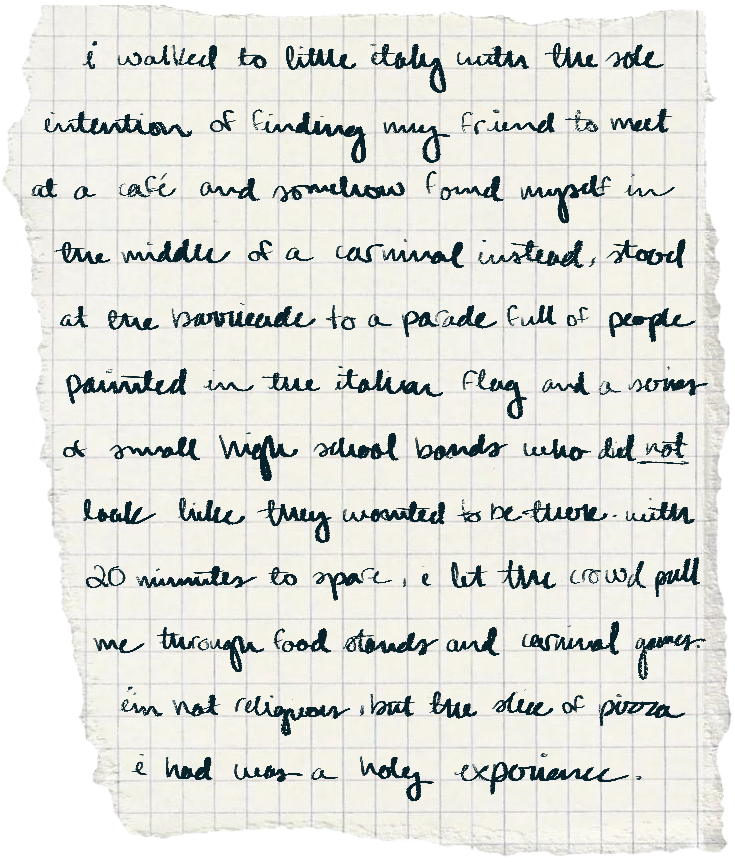 i walked to little italy with the sole
intention of finding my friend to meet
at a café and somehow found myself in
the middle of a carnival instead, stood
at the barricade to a parade full of people
painted in the italian flag and a series
of small high school bands who did not
look like they wanted to be there. with
20 minutes to spare, i let the crowd pull
me through food stands and carnival games.
i'm not religious, but the slice of pizza
i had was a holy experience.